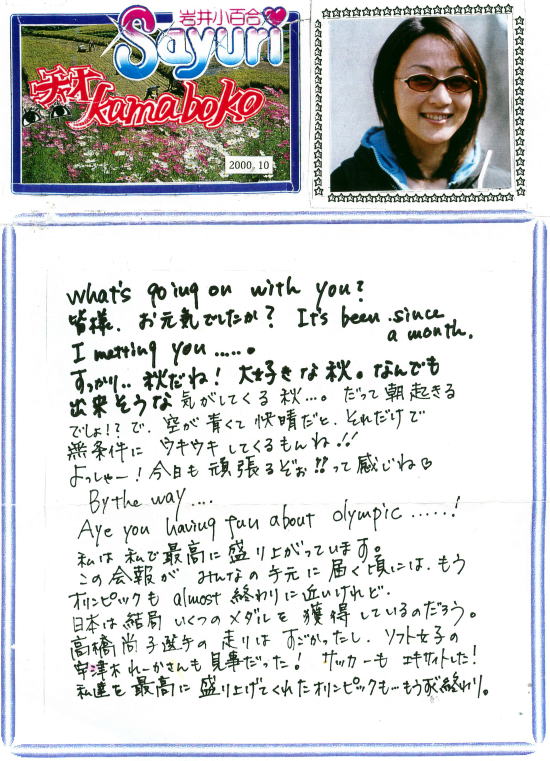 岩井小百合
Sayuri
kamaboko
2000, 10
What's going on with you?
皆様、お元気でしたか? It's been since
a month.
I metting you ......
すっかり.. 秋だね! 大好きな秋。なんでも
出来そうな気がしてくる秋...。だって朝起きる
でしょ!? で、空が青くて快晴だと、それだけで
無条件にウキウキしてくるもんね!!
よっしゃー!今日も頑張るぞぉ!!って感じね♡
By the way ....
Aye you having fun about olympic .....!
私は私で最高に盛り上がっています。
この会報がみんなの手元に届く頃には、もう
オリンピックも almost 終わりに近いけれど、
日本は結局いくつのメダルを獲得しているのだろう。
高橋尚子選手の走りはすごかったし、ソフト女子の
宇津木れーかさんも見事だった!サッカーもエキサイトした!
私達を最高に盛り上げてくれたオリンピックも…もうすぐ終わり。